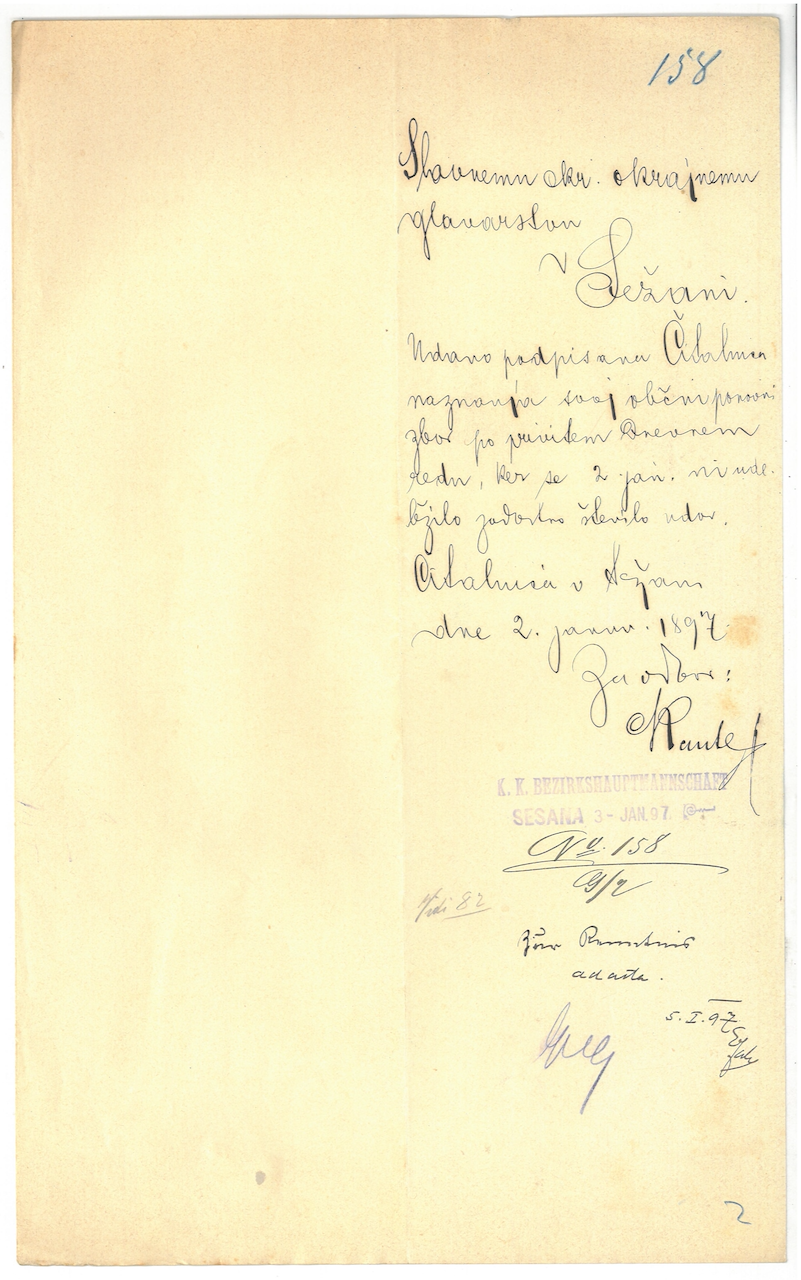 158
Slavnemu ckr. okrajnemu
glavarstvu
v
Sežani.
Udano podpisana Čitalnica
naznanja svoj občni ponovni
zbor po privitem dnevnem
redu, ker se 2 jan. ni ude-
ležilo zadostno število udov.
Čitalnica v Sežani
dne 2. januv. 1897.
Za odbor:
K. K. BEZIRKSHAUPTMANNSCHAFT
SESANA 3-JAN. 97.
No. 158
Vidi 82
Zur Kenntnis
ad acta.
5. I. 97
2